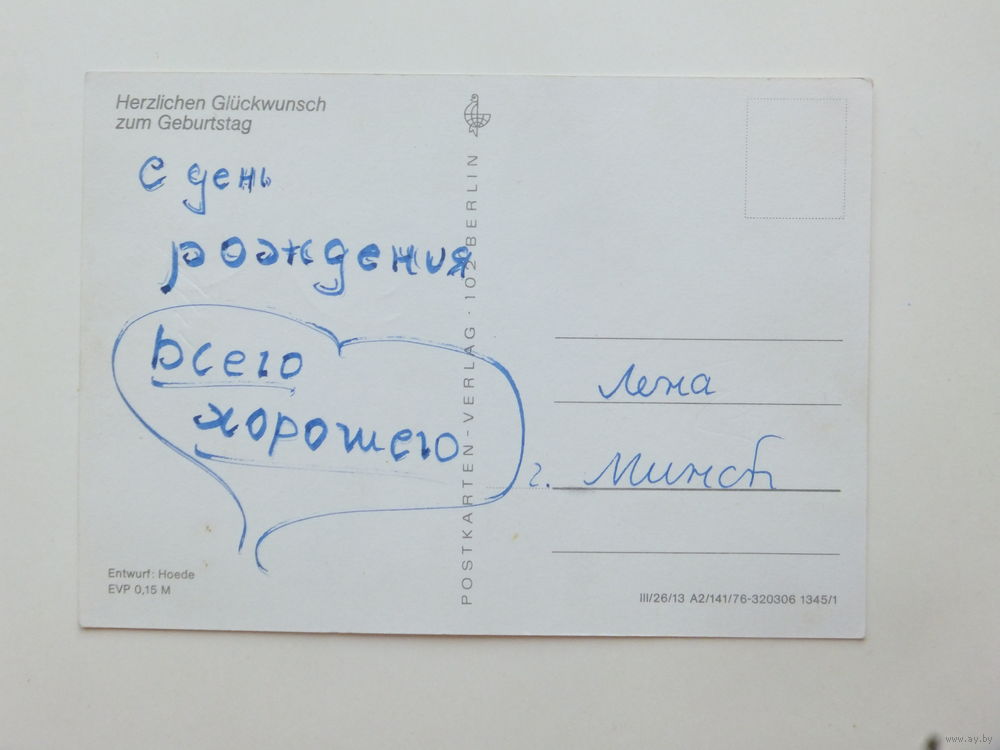 Herzlichen Glückwunsch
zum Geburtstag
с день
рождения
Всего
хорошего
POSTKARTEN-VERLAG · 102 BERLIN
Лена
г. Минск
Entwurf: Hoede
EVP 0,15 M
III/26/13 A2/141/76-320306 1345/1
www.ay.by